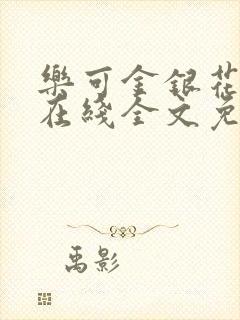 樂可金銀花
在綫全文免
禹影